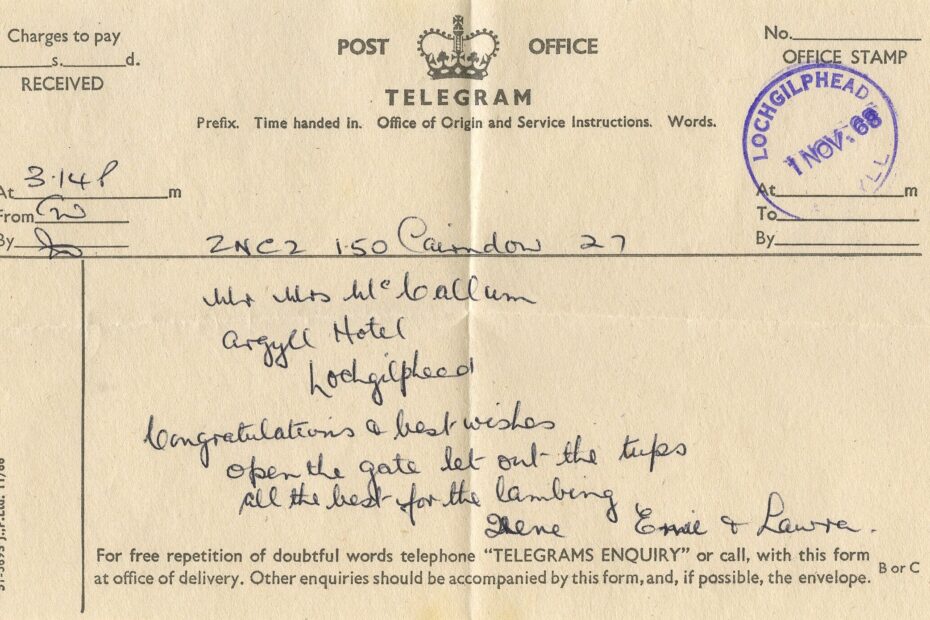 Charges to pay
s. d.
RECEIVED
POST OFFICE
TELEGRAM
Prefix. Time handed in. Office of Origin and Service Instructions. Words.
No.
OFFICE STAMP
LOCHGILPHEAD
1 NOV. 68
At 3.14 P m
From
By
At m
To
By
2NC2 1.50 Cairndow 27
Mr Mrs McCallum
Argyll Hotel
Lochgilphead
Congratulations & best wishes
open the gate let out the tups
all the best for the lambing
Irene Ernie & Lawra.
For free repetition of doubtful words telephone “TELEGRAMS ENQUIRY” or call, with this form
at office of delivery. Other enquiries should be accompanied by this form, and, if possible, the envelope.
B or C